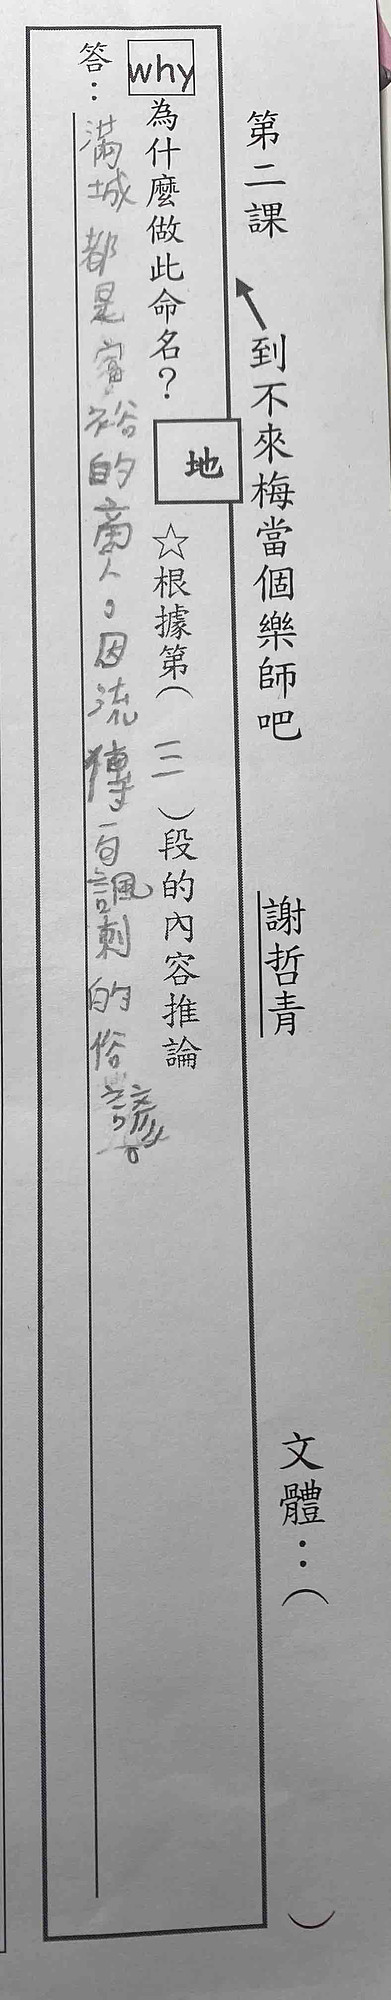 第二課　到不來梅當個樂師吧　謝哲青　文體：（　）
地
why 為什麼做此命名？ ☆根據第（ 三 ）段的內容推論
答：滿城都是富裕的商人。因流傳一句諷刺的俗諺。